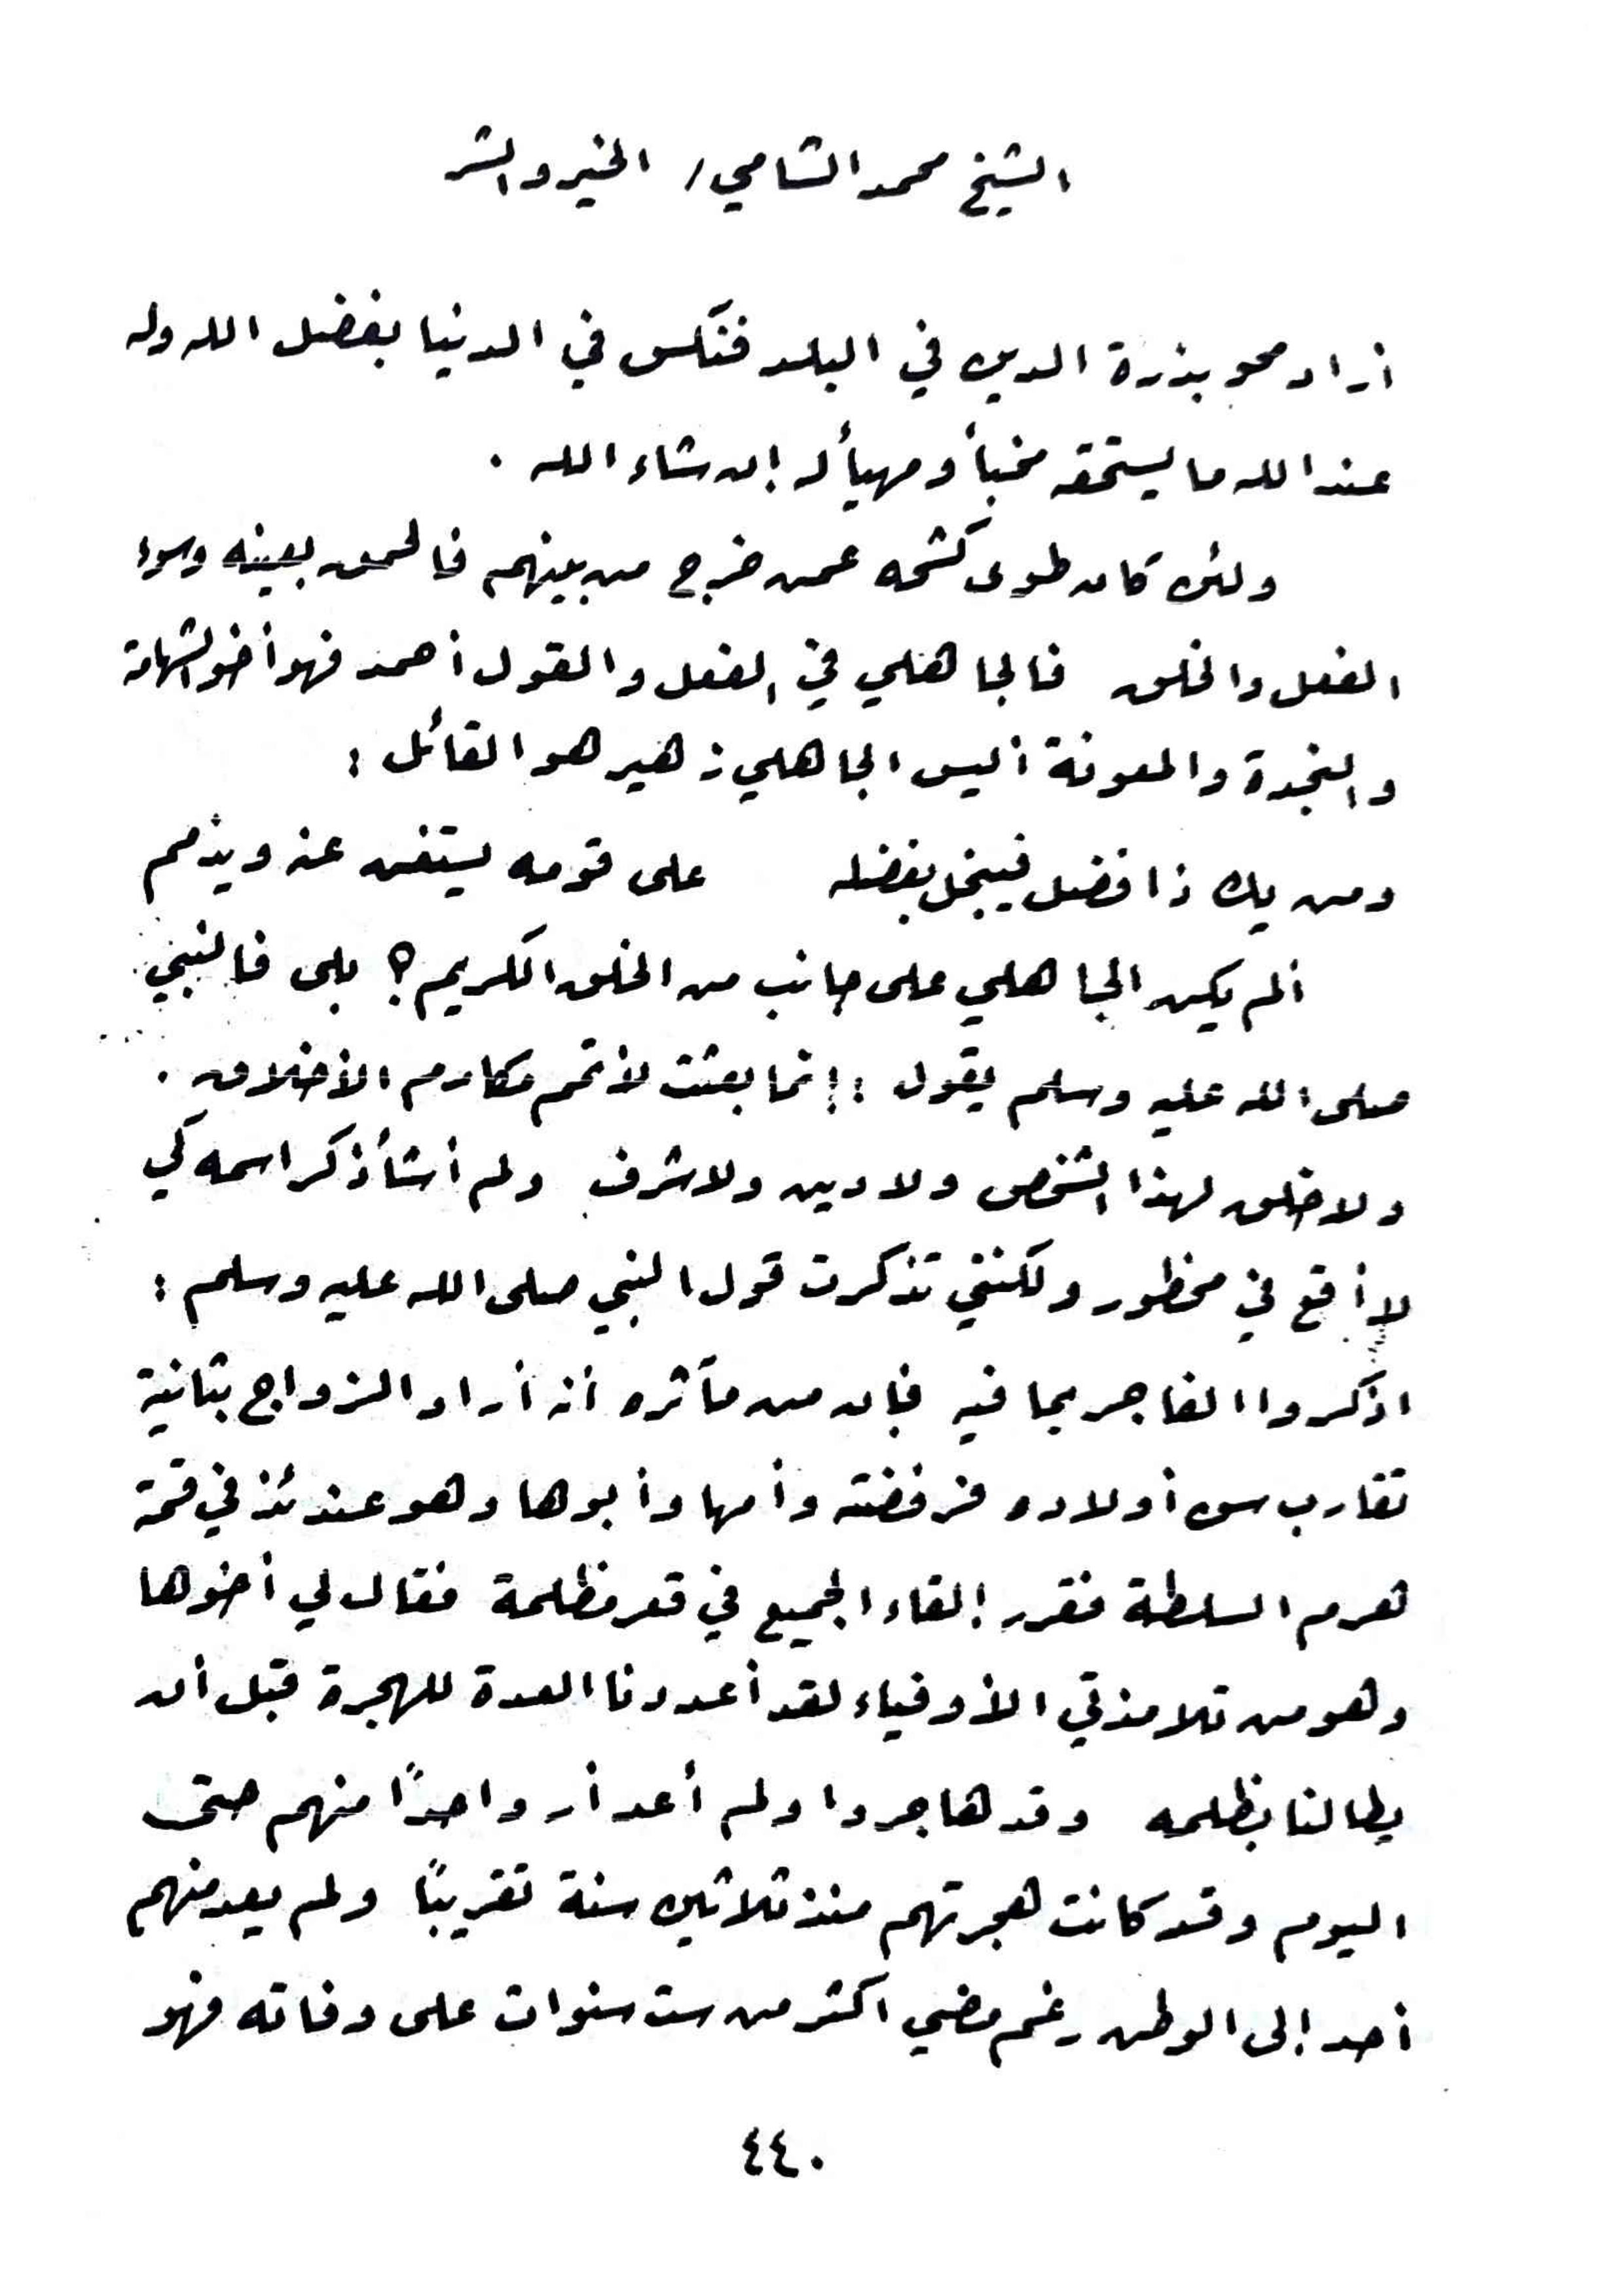 الشيخ محمد الشامي / الخير والشر
أراد محو بذرة الدين في البلد فنكس في الدنيا بفضل الله وله
عند الله ما يستحقه مخبأ ومهيأ له إن شاء الله .
ولئن كان طوى كشحه عمن خرج من بينهم فالحمق بعينه وسوء
الفعل والخلق فالجاهلي في الفعل والقول أحمد فهو أخو الشهامة
والنجدة والمعونة أليس الجاهلي زهير هو القائل :
ومن يك ذا فضل فيبخل بفضله على قومه يستغن عنه ويذمم
ألم يكن الجاهلي على جانب من الخلق الكريم ؟ بلى فالنبي
صلى الله عليه وسلم يقول : إنما بعثت لأتمم مكارم الأخلاق .
ولا خلق لهذا الشخص ولا دين ولا شرف ولم أشأ ذكر اسمه كي
لا أقع في محظور ولكنني تذكرت قول النبي صلى الله عليه وسلم :
اذكروا الفاجر بما فيه فإن من مآثره أنه أراد الزواج بثانية
تقارب سن أولاده فرفضته وأمها وأبوها وهو عندئذ في قمة
هرم السلطة فقرر إلقاء الجميع في قعر مظلمة فقال لي أخوها
وهو من تلامذتي الأوفياء لقد أعددنا العدة للهجرة قبل أن
يطالنا بظلمه وقد هاجروا ولم أعد أر واحدًا منهم حتى
اليوم وقد كانت هجرتهم منذ ثلاثين سنة تقريبًا ولم يعد منهم
أحد إلى الوطن رغم مضي اكثر من ست سنوات على وفاته فهو
٤٤٠